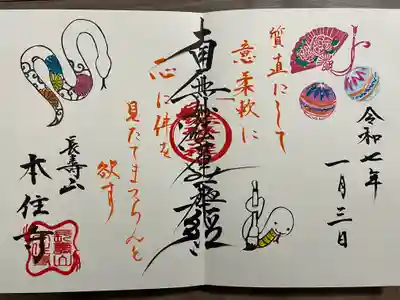 令和七年
一月三日
質直にして
意柔軟に
南無妙法蓮華経
心に仏を
見たてまつらんと
欲す
長寿山
本住寺